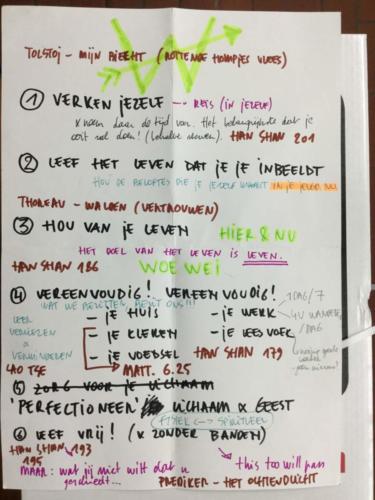 W
TOLSTOJ - MIJN BIECHT (ROTTENDE HOMPJES VLEES)
① VERKEN JEZELF --> REIS (IN JEZELF)
x neem daar de tijd voor. Het belangrijkste dat je
ooit zal doen! HAN SHAN 201
② LEEF HET LEVEN DAT JE JE INBEELDT
HOU DE BELOFTES DIE JE JEZELF MAAKT IN JE JEUGD. NU
THOREAU - WALDEN (VERTROUWEN)
③ HOU VAN JE LEVEN HIER & NU
HET DOEL VAN HET LEVEN IS LEVEN.
HAN SHAN 186 WOE WEI
④ VEREENVOUDIG! VEREENVOUDIG!
WAT WE BEZITTEN, BEZIT ONS!!!
1 DAG/7
LEER
- JE HUIS - JE WERK
4U WANDELEN
/DAG
- JE KLEREN - JE LEESVOER
VERMINDEREN
- JE VOEDSEL HAN SHAN 179
LAO TSE MATT. 6.25
⑤ ZORG VOOR JE LICHAAM
'PERFECTIONEER' LICHAAM & GEEST
FYSIEK <--> SPIRITUEEL
⑥ LEEF VRIJ! (x ZONDER BANDEN)
HAN SHAN 193
195
this too will pass
MAAR: wat jij niet wilt dat u
geschiedt... PREDIKER - HET OCHTENDLICHT